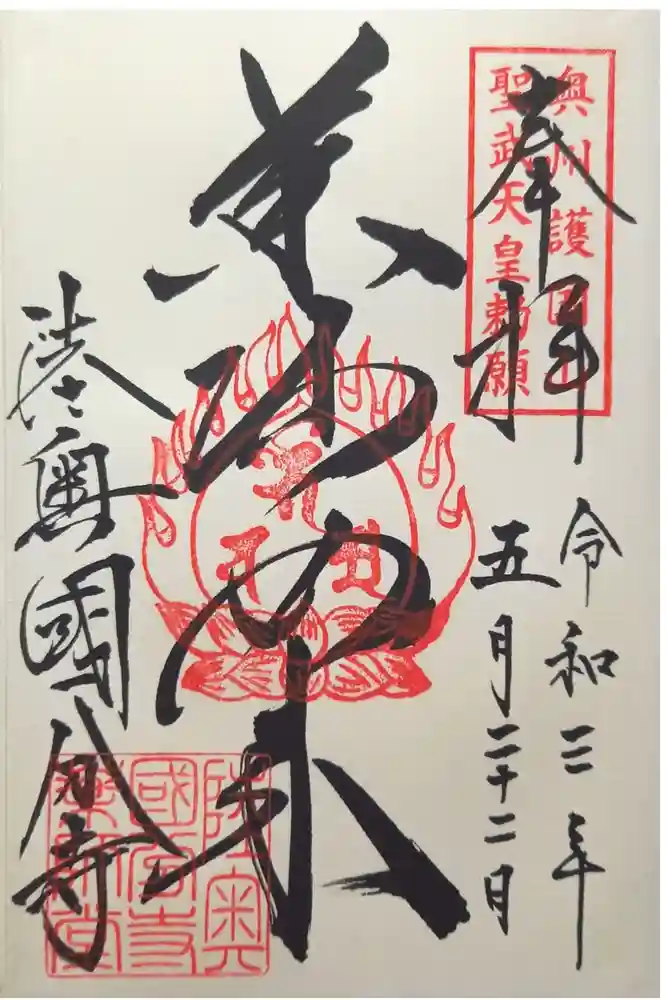 奥州護国山
聖武天皇勅願
奉拝
令和三年
五月二十二日
薬師如来
陸奥國分寺
陸奥
國分寺
薬師堂